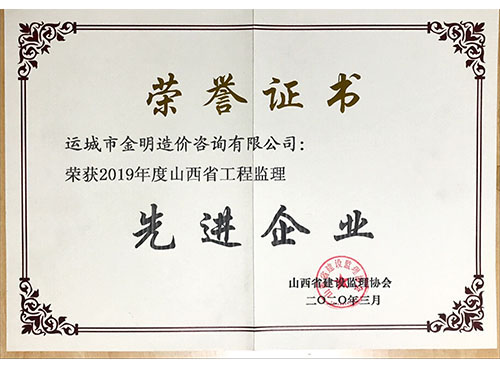 荣誉证书
运城市金明造价咨询有限公司：
荣获2019年度山西省工程监理
先进企业
山西省建设监理协会
二〇二〇年三月
山西省建设监理协会